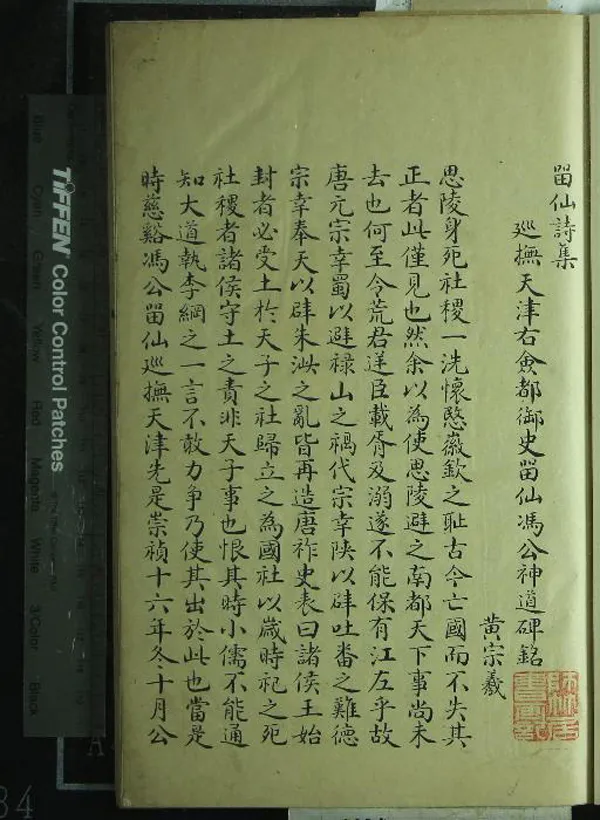 㽞仙詩集
巡撫天津右僉都御史㽞仙馮公神道碑銘
黃宗羲
思陵身死社稷一洗懷愍徽欽之耻古今亡國而不失其
正者此僅見也然余以為使思陵避之南都天下事尚未
去也何至今荒君逆臣載胥及溺遂不能保有江左乎故
唐元宗幸蜀以避祿山之禍代宗幸陝以辟吐番之難德
宗幸奉天以辟朱泚之亂皆再造唐祚史表曰諸侯王始
封者必受土於天子之社歸立之為國社以歲時祀之死
社稷者諸侯守土之責非天子事也恨其時小儒不能通
知大道執李綱之一言不敢力争乃使其出於此也當是
時慈谿馮公㽞仙巡撫天津先是崇禎十六年冬十月公
TIFFEN Color Control Patches
Blue Cyan Green Yellow Red Magenta White 3/Color Black
A